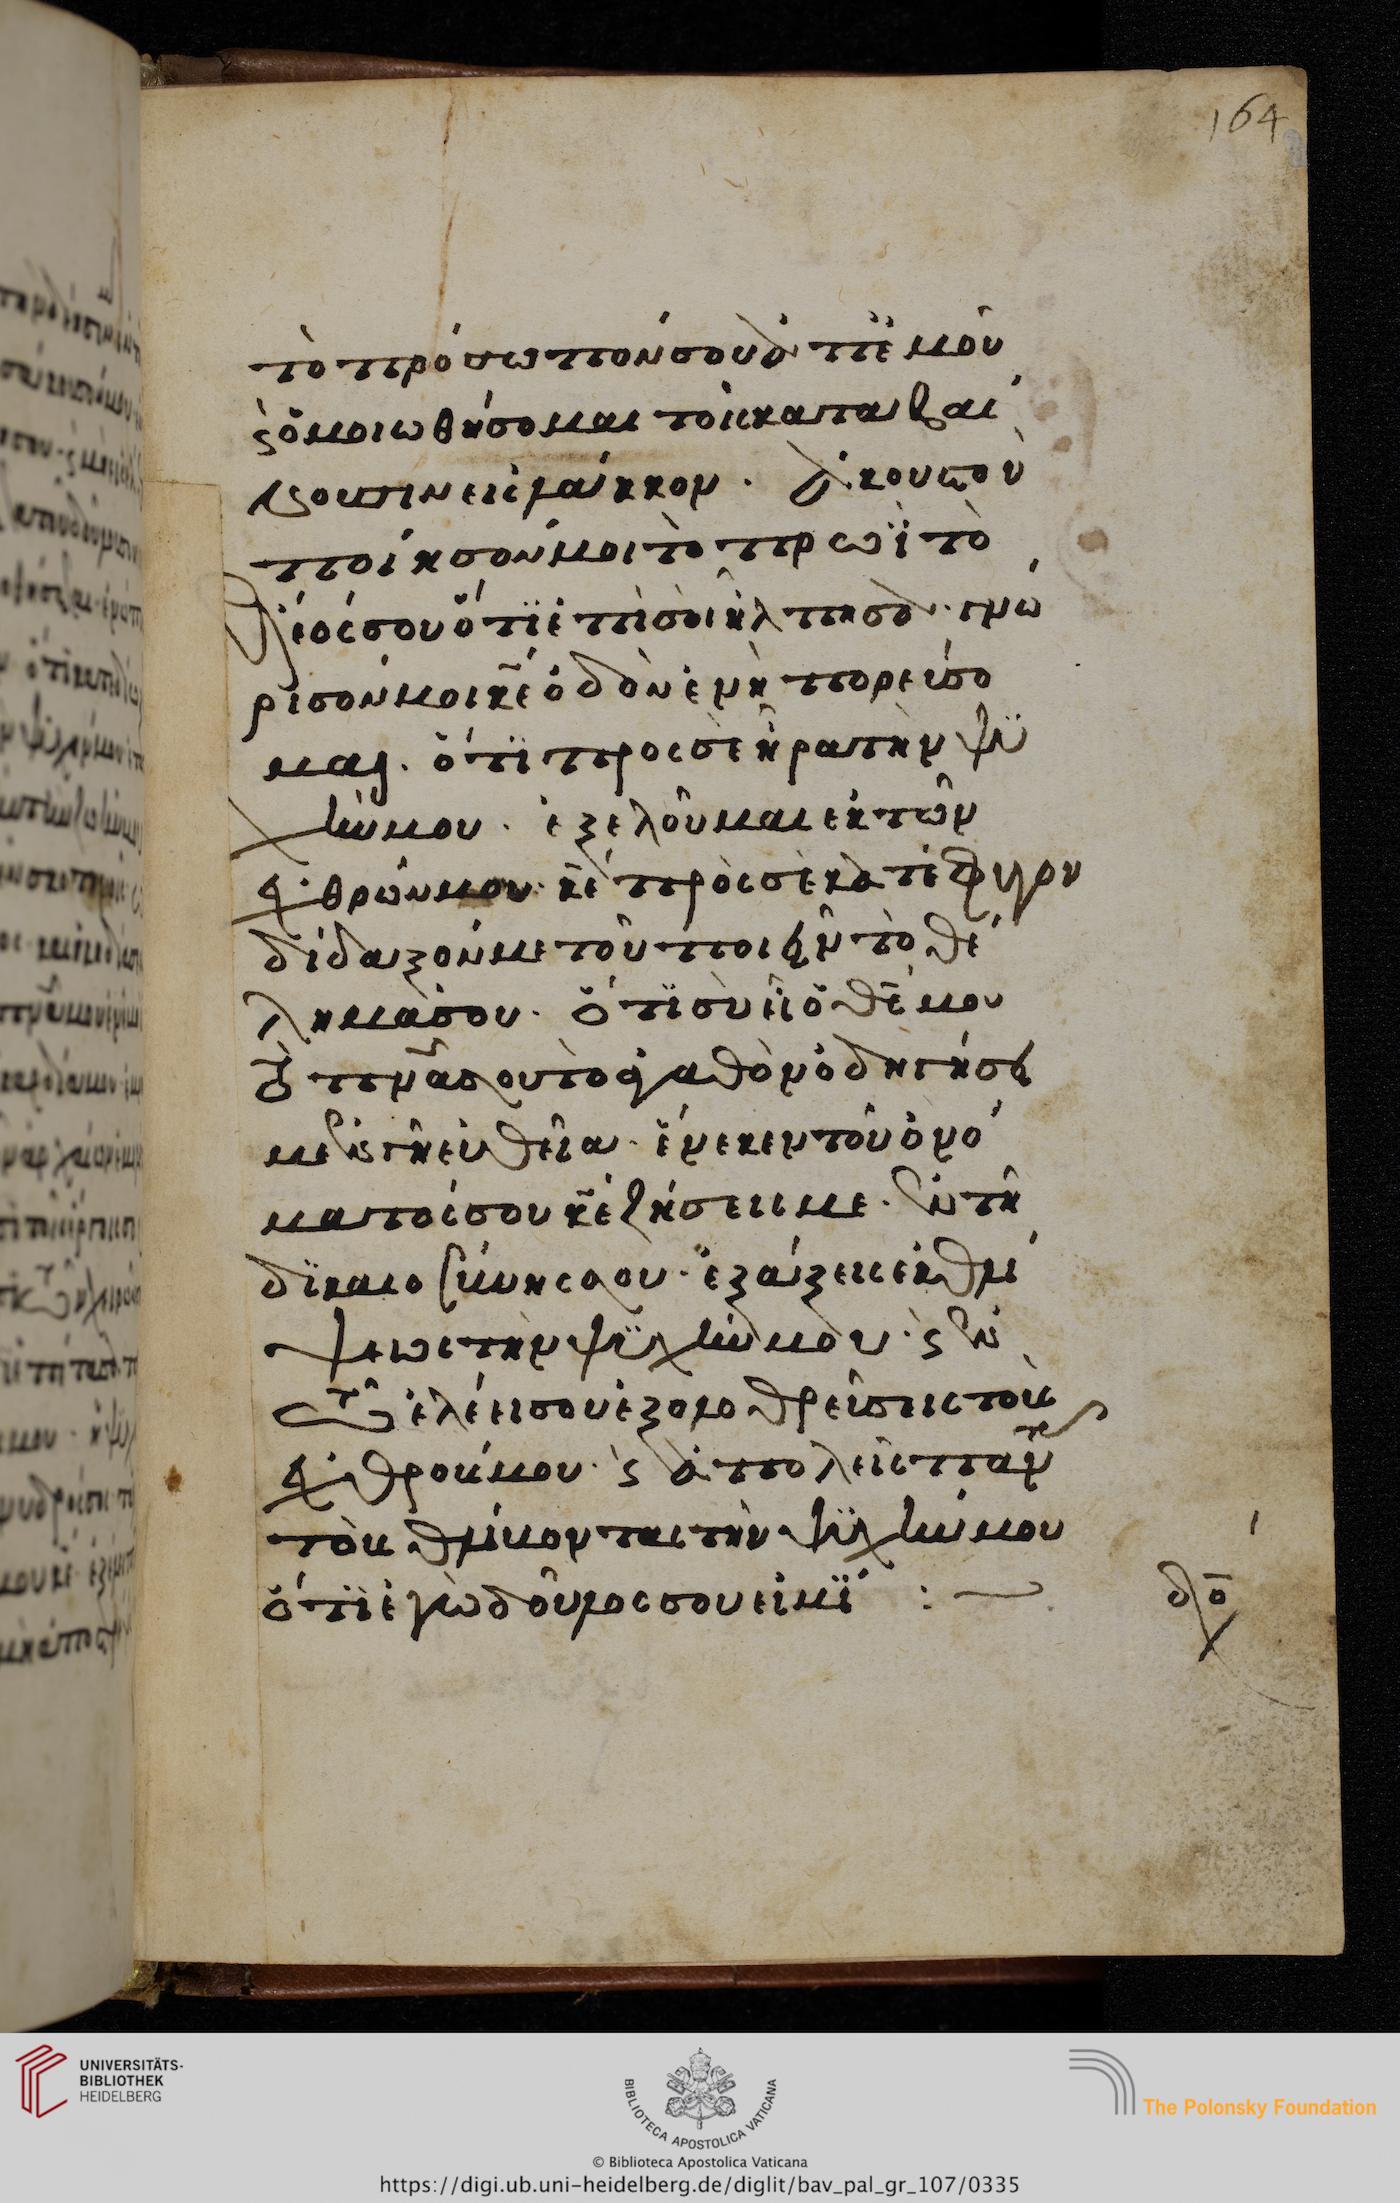 164
τὸ πρόσωπόν σου ἀπ ἐμοῦ
ς ὁμοιωθήσομαι τοῖς καταβαί
νουσιν εις λάκκον. ἀκουστὸν
ποίησόν μοι τὸ πρωῒ τὸ
ἔλεός σου ὅτϊ ἐπὶ σοὶ ἤλπησα. γνώ
ρισόν μοι κε ὁδὸν ἐν ἡ πορεύσο
μαι. ὅτϊ προς σὲ ἦρα τὴν ψϋ
χήν μου. ἐξελοῦ με ἐκ τῶν
ἐχθρών μου κε πρὸς σὲ κατέφυγον
δίδαξόν με τοῦ ποιεῖν τὸ θέ
λημά σου. ὅτϊ σὺ εἶ ὁ θς μου
τὸ πνα σου τὸ ἀγαθὸν ὁδηγήσει
με ἐν γῆ ευθεία. ἕνεκεν τοῦ ὀνό
ματός σου κε ζήσεις με. ἐν τῆ
δϊκαιοσύνη σου ἐξάξεις ἐκ θλί
ψεως τὴν ψϋχήν μου. ς ἐν
τῶ ἐλέει σου ἐξολοθρεύσεις τοὺς
ἐχθρούς μου. ς ἀπολεῖς πάν
τας τοὺς θλίβοντας τὴν ψϋχήν μου
ὅτϊ ἐγὼ δοῦλος σου εἰμϊ :~
UNIVERSITÄTS-
BIBLIOTHEK
HEIDELBERG
BIBLIOTECA APOSTOLICA VATICANA
The Polonsky Foundation
© Biblioteca Apostolica Vaticana
https://digi.ub.uni-heidelberg.de/diglit/bav_pal_gr_107/0335